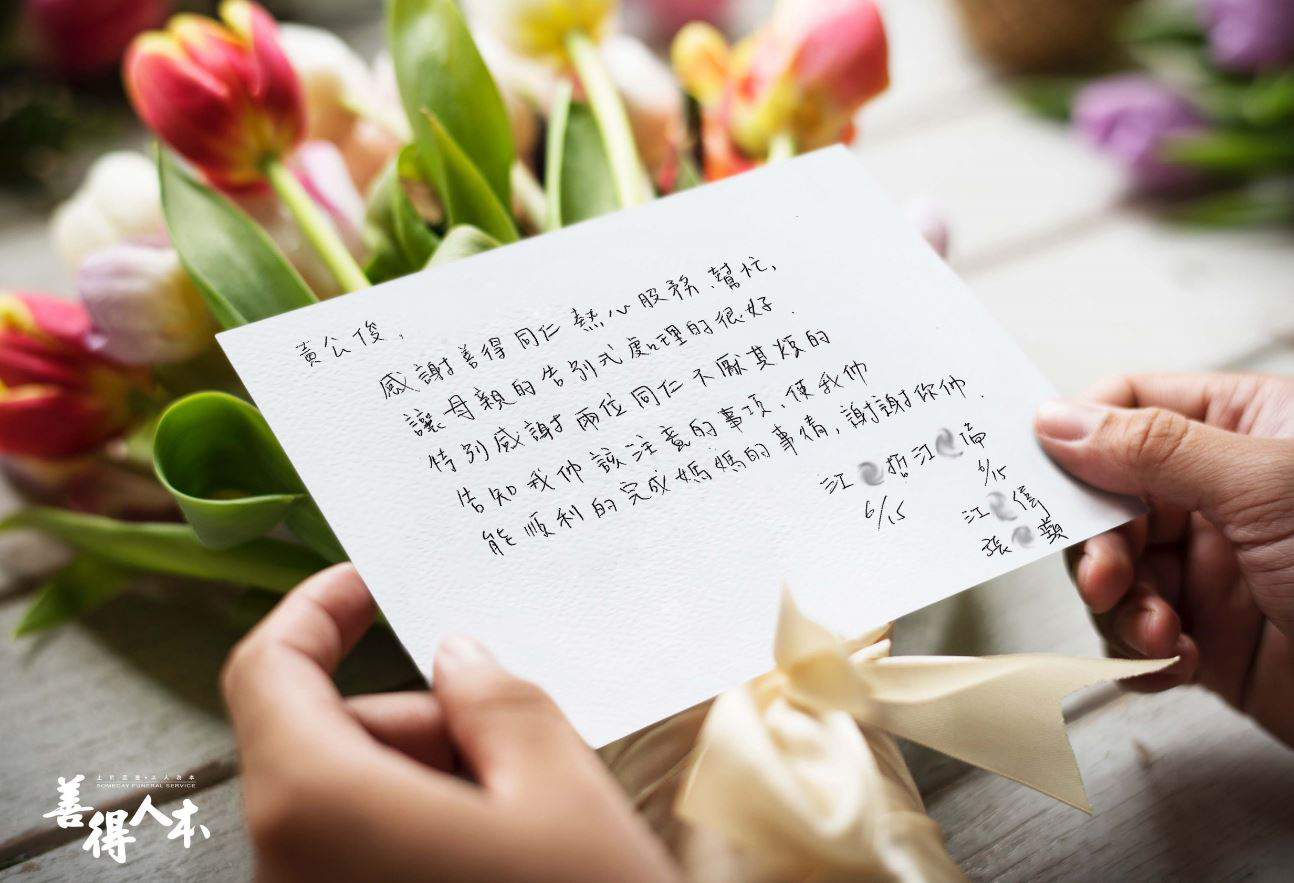 黃公俊,
感謝善得同仁熱心服務、幫忙,
讓母親的告別式處理的很好.
特別感謝兩位同仁不厭其煩的
告知我們該注意的事項、使我們
能順利的完成媽媽的事情,謝謝你們.
江 哲 江 倫
6/15 6/15
江 偉
張 顗
SOMEDAY FUNERAL SERVICE
善得人本